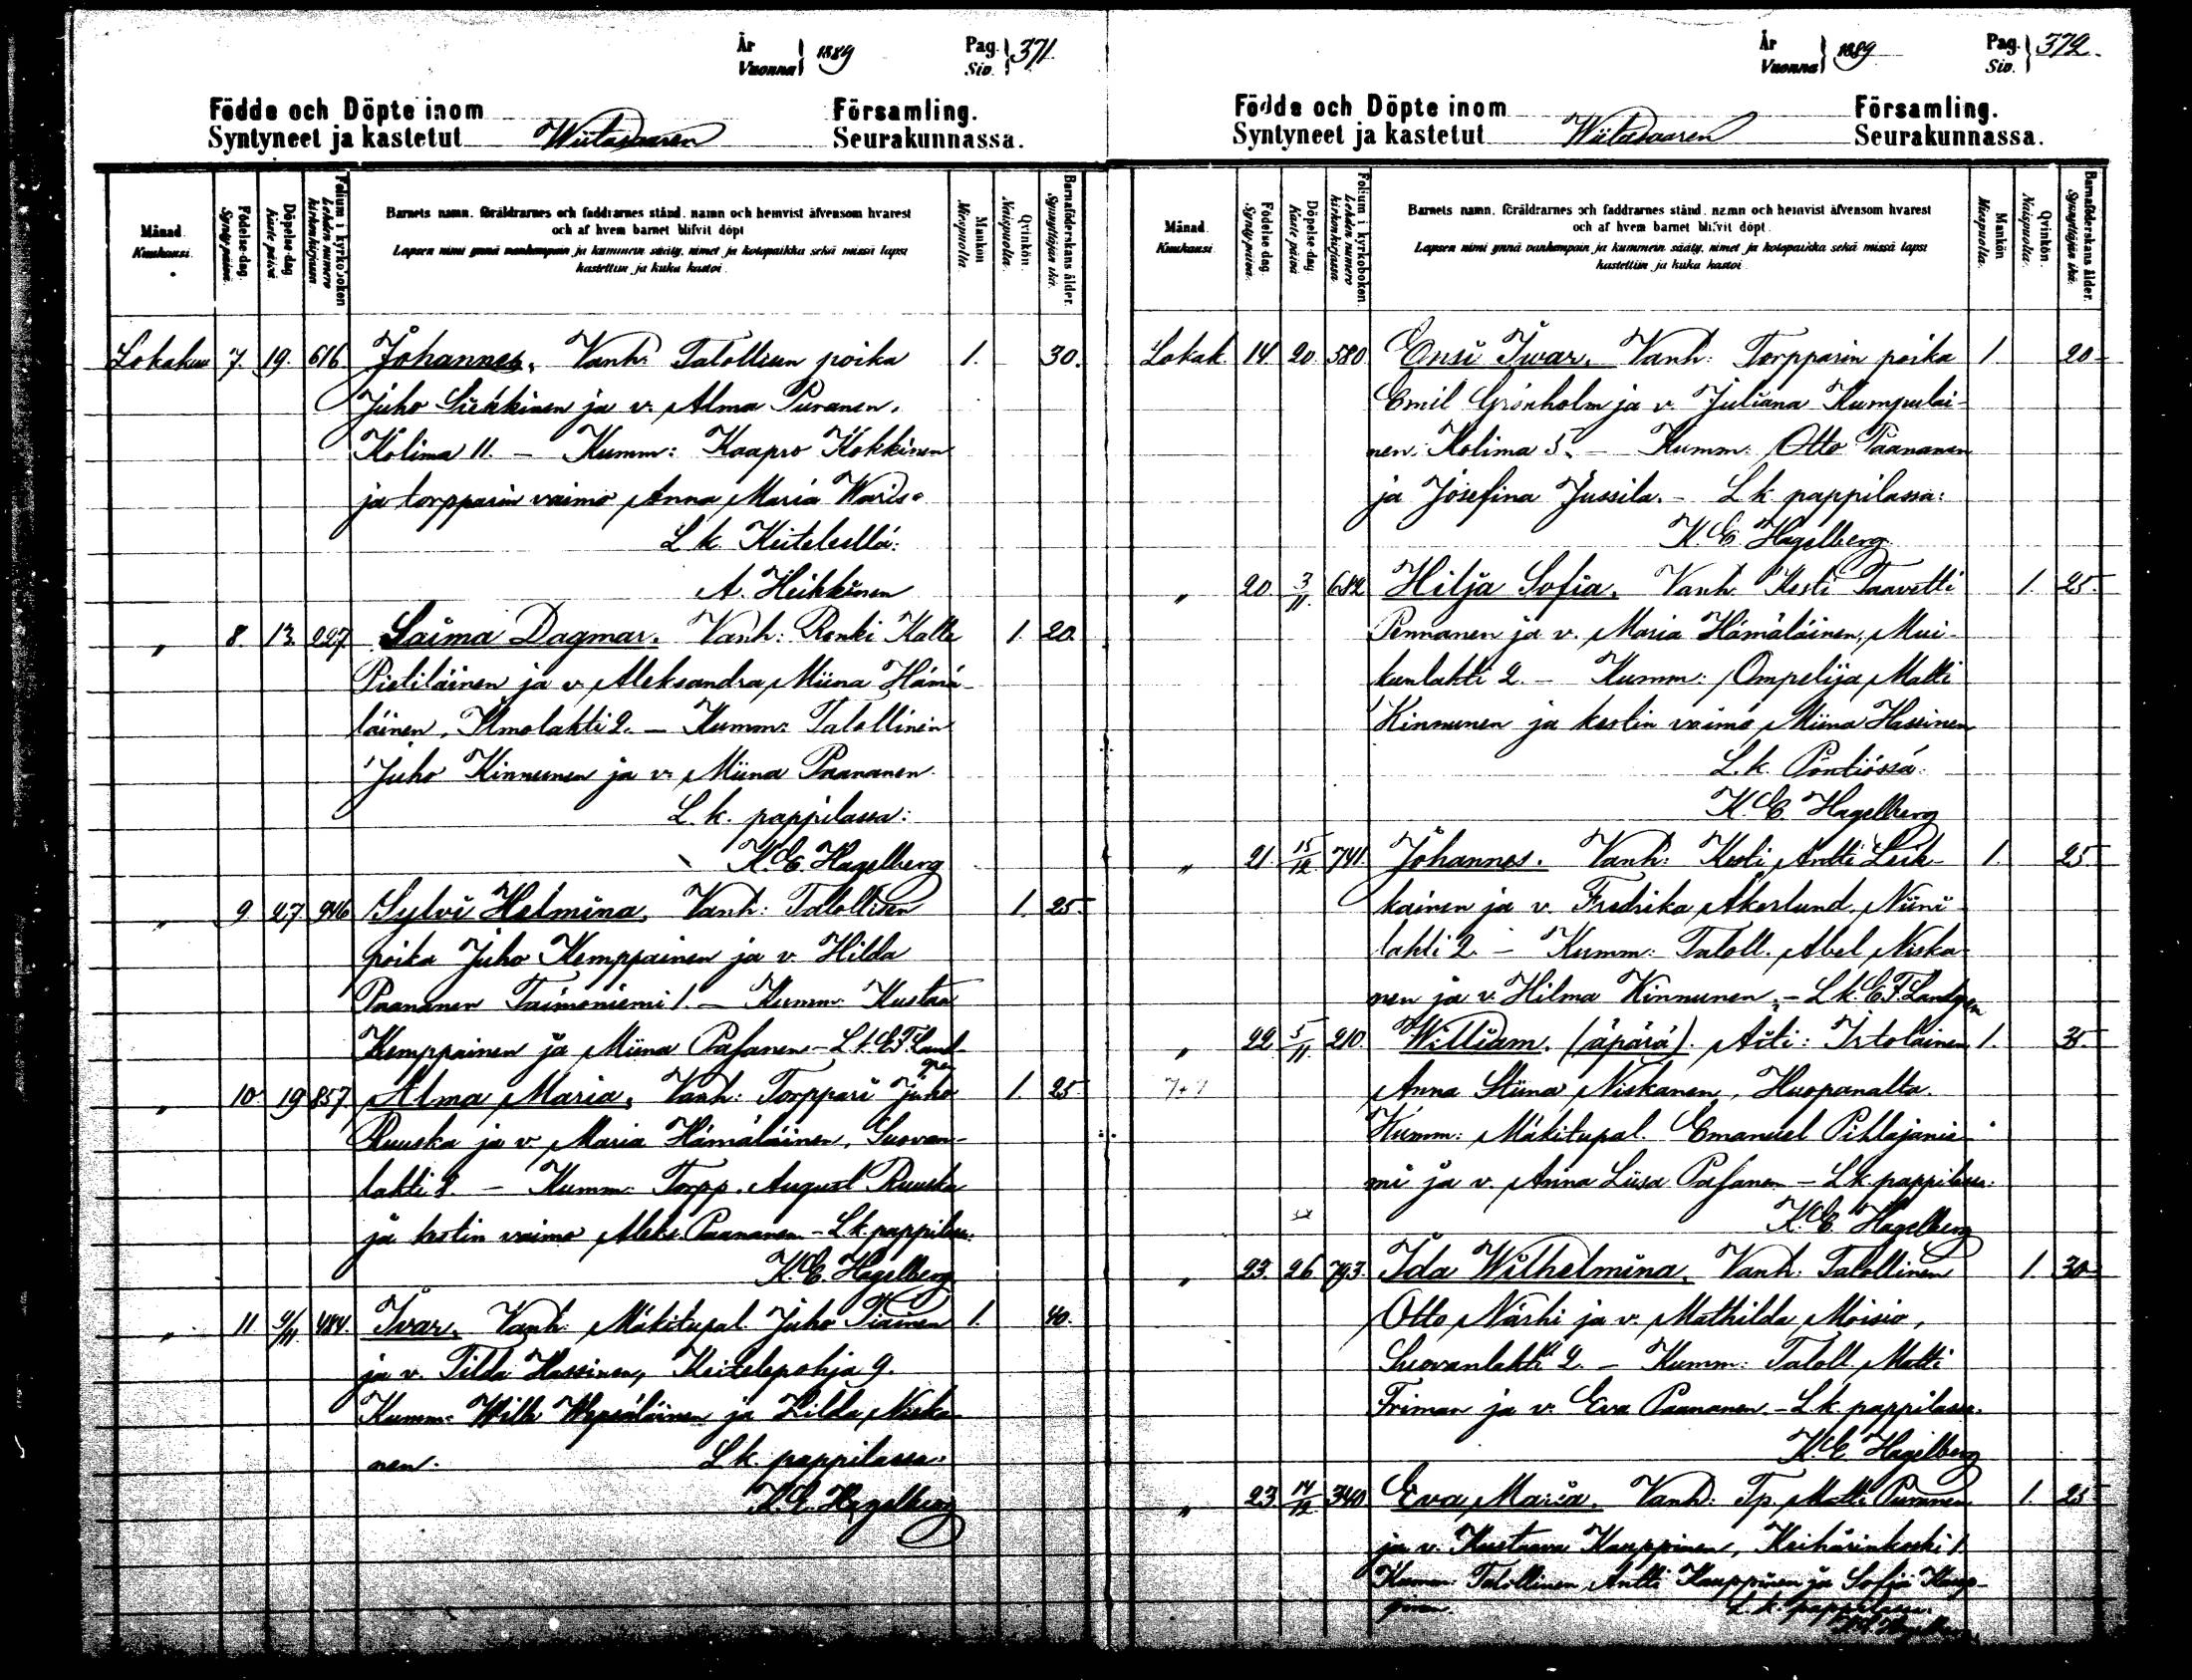 År
Vuonna } 1889
Pag.
Siv. } 371
Födde och Döpte inom Församling.
Syntyneet ja kastetut Wiitasaaren Seurakunnassa.
Månad
Kuukausi.
Födelse-dag.
Synty päivä.
Döpelse-dag
Kaste päivä
Folium i kyrkoboken
Lehden numero
kirkonkirjassa.
Barnets namn, föräldrarnes och faddrarnes stånd, namn och hemvist äfvensom hvarest
och af hvem barnet blifvit döpt
Lapsen nimi ynnä vanhempain ja kummein sääty, nimet ja kotopaikka sekä missä lapsi
kastettiin ja kuka kastoi
Mankön
Miespuolia
Qvinkön.
Naispuolia.
Barnaföderskans ålder.
Synnyttäjän ikä.
Lokakuu 7. 19. 616. Johannes. Vanh: Talollisen poika 1. 30.
Juho Siekkinen ja v. Alma Puranen.
Kolima 11. – Kumm: Kaapro Kokkinen
ja torpparin vaimo Anna Maria Waris.
L. k. Keiteleellä:
A. Heikkinen
„ 8. 13. 227. Saima Dagmar. Vanh: Renki Kalle 1. 20.
Pietiläinen ja v. Aleksandra Miina Hämä-
läinen, Ilmolahti 2. – Kumm: Talollinen
Juho Kinnunen ja v. Miina Paananen.
L. k. pappilassa:
K. E. Hagelberg
„ 9 27 946 Sylvi Helmina. Vanh: Talollisen 1. 25.
poika Juho Kemppainen ja v. Hilda
Paananen Taimoniemi 1. – Kumm: Kustaa
Kemppainen ja Miina Pasanen – L. k. E. F. Land-
gren
„ 10. 19 857. Alma Maria. Vanh: Torppari Juho 1. 25.
Ruuska ja v. Maria Hämäläinen, Suovan-
lahti – Kumm: Torpp. August Ruuska
ja kestin vaimo Aleks. Paananen – L. k. pappilassa:
K. E. Hagelberg
„ 11 9/11. 484. Ivar. Vanh: Mäkitupal. Juho Piainen 1. 40.
ja v. Tilda Hassinen, Keitelepohja 9.
Kumm: Wille Wepsäläinen ja Hilda Niska-
nen. L. k. pappilassa:
K. E. Hagelberg
År
Vuonna } 1889
Pag.
Siv. } 372.
Födde och Döpte inom Församling.
Syntyneet ja kastetut Wiitasaaren Seurakunnassa.
Månad
Kuukausi
Födelse dag.
Synty päivä.
Döpelse dag
Kaste päivä
Folium i kyrkoboken.
Lehden numero
kirkonkirjassa
Barnets namn, föräldrarnes och faddrarnes stånd, namn och hemvist äfvensom hvarest
och af hvem barnet blifvit döpt.
Lapsen nimi ynnä vanhempain ja kummein sääty, nimet ja kotopaikka sekä missä lapsi
kastettiin ja kuka kastoi
Mankön
Miespuolia.
Qvinkön.
Naispuolia.
Barnaföderskans ålder.
Synnyttäjän ikä.
Lokak. 14. 20. 580 Ensi Iwar. Vanh: Torpparin poika 1. 20
Emil Grönholm ja v. Juliana Kumpulai-
nen, Kolima 5. – Kumm: Otto Paananen
ja Josefina Jussila. – L. k. pappilassa:
K. E. Hagelberg.
„ 20 3/11. 682 Hilja Sofia. Vanh: Kesti Taavetti 1. 25.
Pennanen ja v. Maria Hämäläinen, Mui-
kunlahti 2. – Kumm: Ompelija Matti
Kinnunen ja kestin vaimo Miina Hassinen
L. k. Pöntiössä:
K. E. Hagelberg
„ 21. 15/12. 741. Johannes. Vanh: Kesti Antti Leik- 1. 25.
kainen ja v. Fredrika Åkerlund, Niini-
lahti 2. – Kumm: Taloll. Abel Niska-
nen ja v. Hilma Kinnunen. – L. k. E. F. Landgren
„ 22. 5/11. 210. William. (äpärä). Äiti: Irtolainen 1. 35.
Anna Stiina Niskanen, Huopanalta.
Kumm: Mäkitupal. Emanuel Pihlajanie-
mi ja v. Anna Liisa Pasanen – L. k. pappilassa:
K. E. Hagelberg
„ 23. 26 793. Ida Wilhelmina. Vanh: Talollinen 1. 30
Otto Närhi ja v. Mathilda Moisio,
Suovanlahti 2. – Kumm: Taloll. Matti
Friman ja v. Eva Paananen. – L. k. pappilassa.
K. E. Hagelberg
„ 23 14/12. 340 Eva Maria. Vanh: Tp. Matti Puranen 1. 25
ja v. Kustaava Kauppinen, Keihärinkoski 1.
Kumm: Talollinen Antti Kauppinen ja Sofia Kaup-
pinen. L. k. pappilassa: